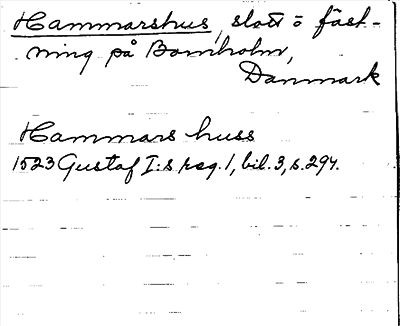 Hammarshus, slott o fäst-
ning på Bornholm,
Danmark
Hammars huss
1523 Gustaf I:s reg. 1, bil. 3, s. 294.